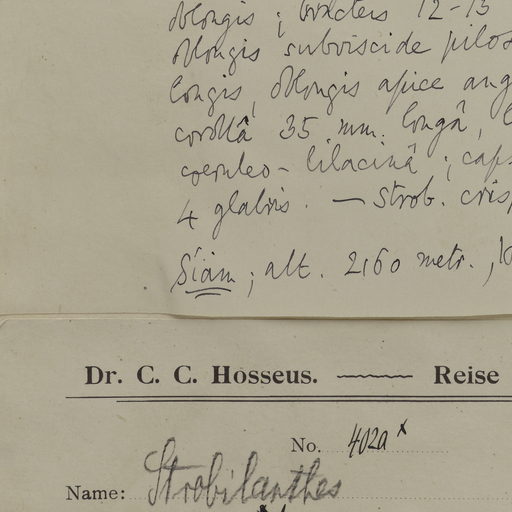 oblongis ; bracteis 12-15
oblongis subviscide pilos
longis, oblongis apice ang
corollâ 35 mm. longâ,
coeruleo-lilacinâ ; caps
4 glabris. — Strob. crisp
Siam ; alt. 2160 metr.,
Dr. C. C. Hosseus. — Reise
No. 402a x
Name: Strobilanthes